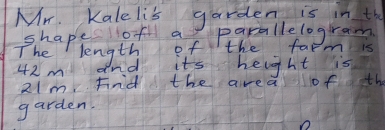 Mr. Kaleli's garden is in th
shape of a parallelogram.
The length of the farm is
42 m and its height is
21 m. Find the area of th
garden.